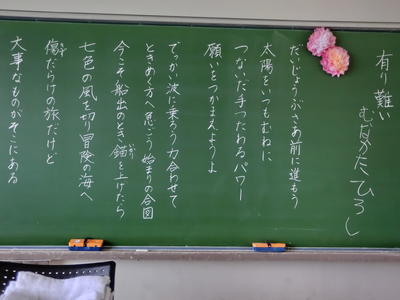 有り難い
むなかたひろし
だいじょうぶさあ前に進もう
太陽をいつもむねに
つないだ手つたわるパワー
願いをつかまんようよ
でっかい波に乗ろう力合わせて
ときめく方へ急ごう始まりの合図
今こそ船出のとき錨を上げたら
いかり
七色の風を切り冒険の海へ
傷だらけの旅だけど
きず
大事なものがそこにある